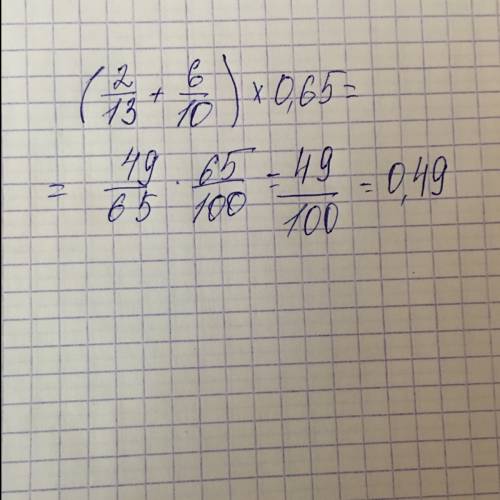 (2/13 + 6/10) × 0,65 =
= 49/65 · 65/100 = 49/100 = 0,49